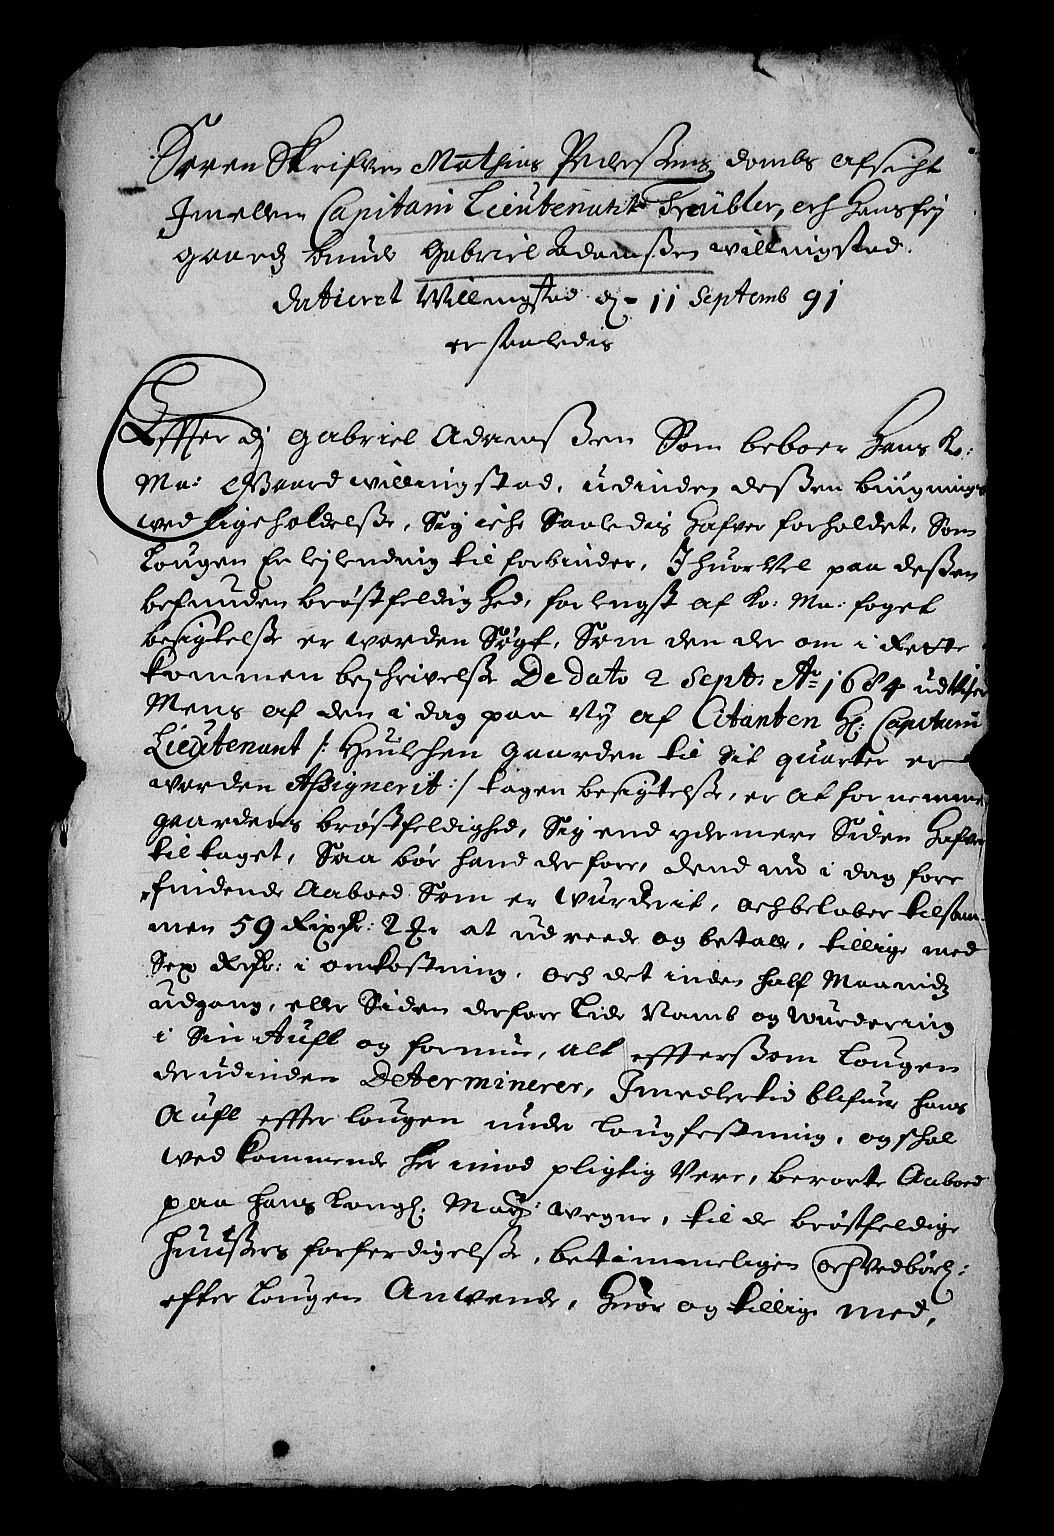 Soren Skrifver Mathias Pedersens dombs afsicht
Imellem Capitain Lieutenant Treubler, och Hans frj
gaards bunde Gabriel Adamsßen willingstad.
datieret Willingstad d. 11 Septemb 91
er saaledis
Effter dj Gabriel Adamsßen Som beboer Hans Ko:
Ma: Gaard willingstad, udinden desßen biugnings
wed ligeholdelsße, Sig iche Saaledis Hafver forholdet, Som
Lougen En lejlending til forbinder, Ihuor Vel paa desßen
befunden brøstfeldig Hed, forlengst af Ko: Ma: foget
besigtelsße er worden Søgt, Som den der om i Rette
kommen beschrivelsße De dato 2 Sept: Ao 1684 udViser
Mens af den i dag paa Ny af Citanten Hr: Capitain
Lieutenant /: Huilchen gaarden til Sit quarter er
worden Assignerit :/ tagen besigtelsße, er at fornemme
gaardens brøstfeldighed, Sig end ydermere Siden Hafver
til taget, Saa bør hand derfore, dend nu i dag fore
findende Aaboed Som er Wurderit, och beløber tilsam
men 59 Rixdr: 2 at udreede og betale, tillige med
Sex Rdr: i omkostning, och det inden half Maanidz
udgang, eller Siden derfore lide Namb og wurdering
i Sin Aufl og formue, alt efftersßom Lougen
derudinden Determinerer, Imedlertid blifuer hans
Aufl effter lougen under Lougfestning, og schal
wed kommende her imod pligtig Vere, berørte Aaboed
paa hans Kongl: May: wegne, til de brøstfeldige
Huusßers forferdigelsße, betimmeligen och Vedbørl:
efter Lougen Anwende, Huor og tillige med,